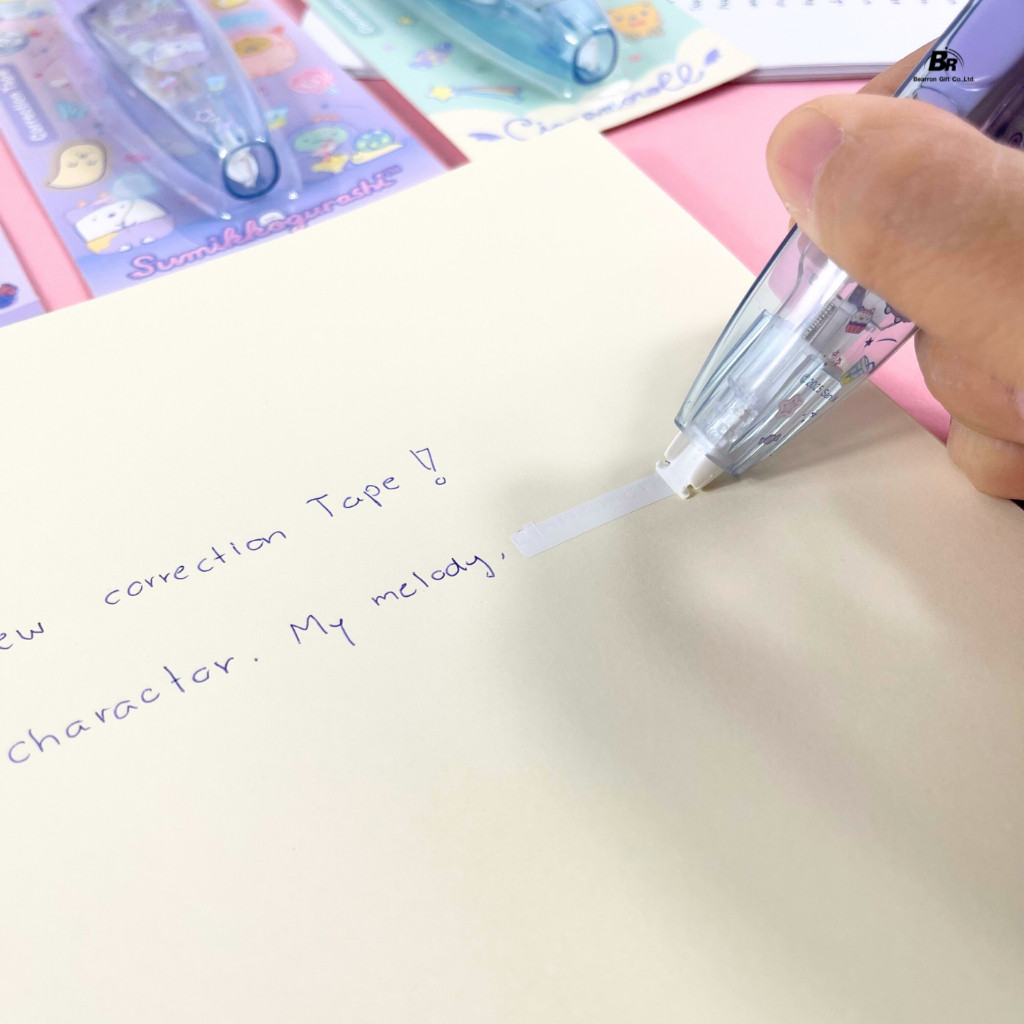 BR
Bearron Gift Co.,Ltd
Correction Tape
Sumikkogurashi™
Cinnamoroll
ew correction Tape!
charactor. My melody,